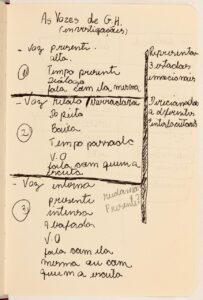 As Vozes de G.H.
(investigações)
- Voz presenti
alta.
① Tempo presenti
Diálogo
fala com ela mesma
- Voz relato / narradora
② Escuta
Tempo passado
V.O
fala com quem a
escuta
- Voz interna
③ presenti
intensa
abafada
V.O
fala com ela
mesma ou com
quem a escuta
Representar
3 estados
emocionais
Direcionados
a diferentes
interlocutores
Presente?